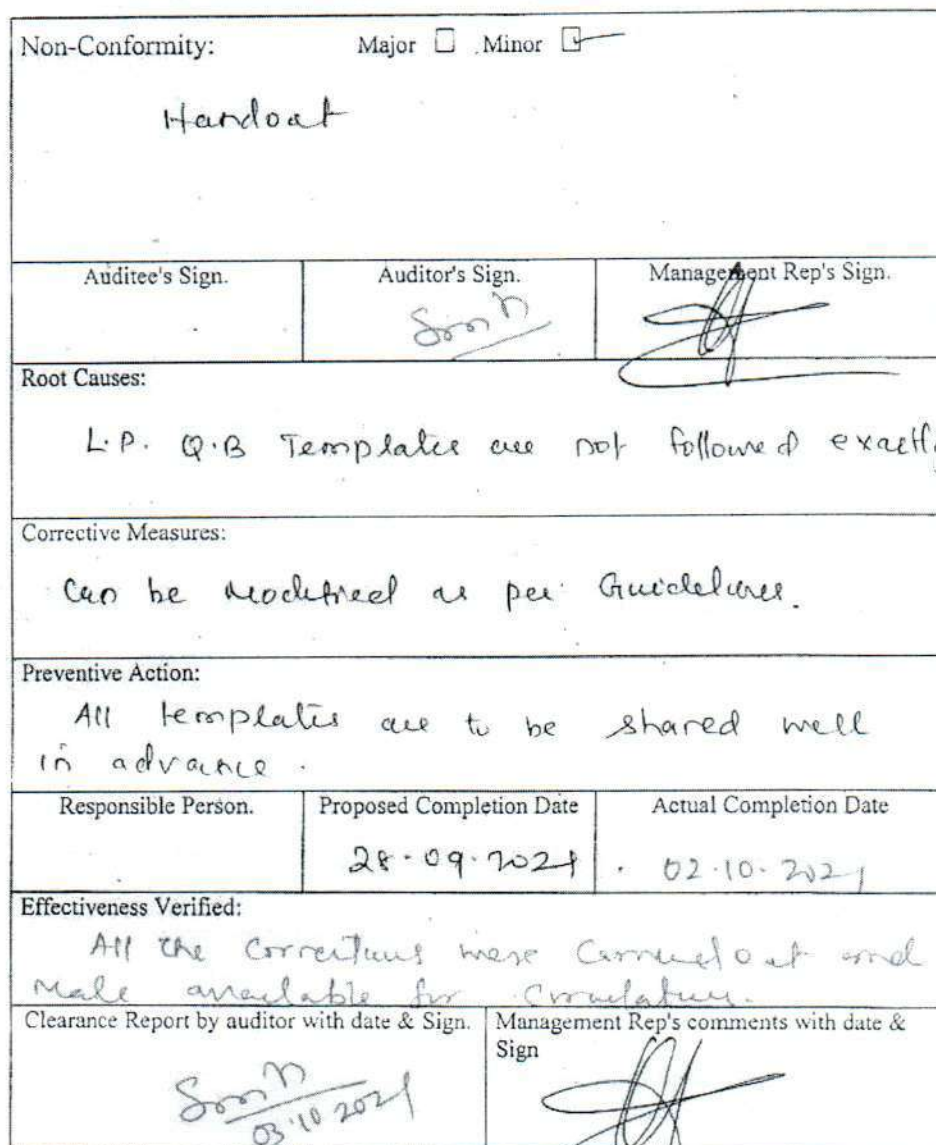 Non-Conformity: Major Minor
Handout
Auditee's Sign. Auditor's Sign. Management Rep's Sign.
Root Causes:
L.P. Q.B Templates are not followed exactly
Corrective Measures:
Can be Modified as per Guidelines.
Preventive Action:
All templates are to be shared well
in advance.
Responsible Person. Proposed Completion Date Actual Completion Date
28.09.2021 02.10.2021
Effectiveness Verified:
All the corrections were Carried out and
Made available for Circulation.
Clearance Report by auditor with date & Sign. Management Rep's comments with date &
Sign
03.10.2021